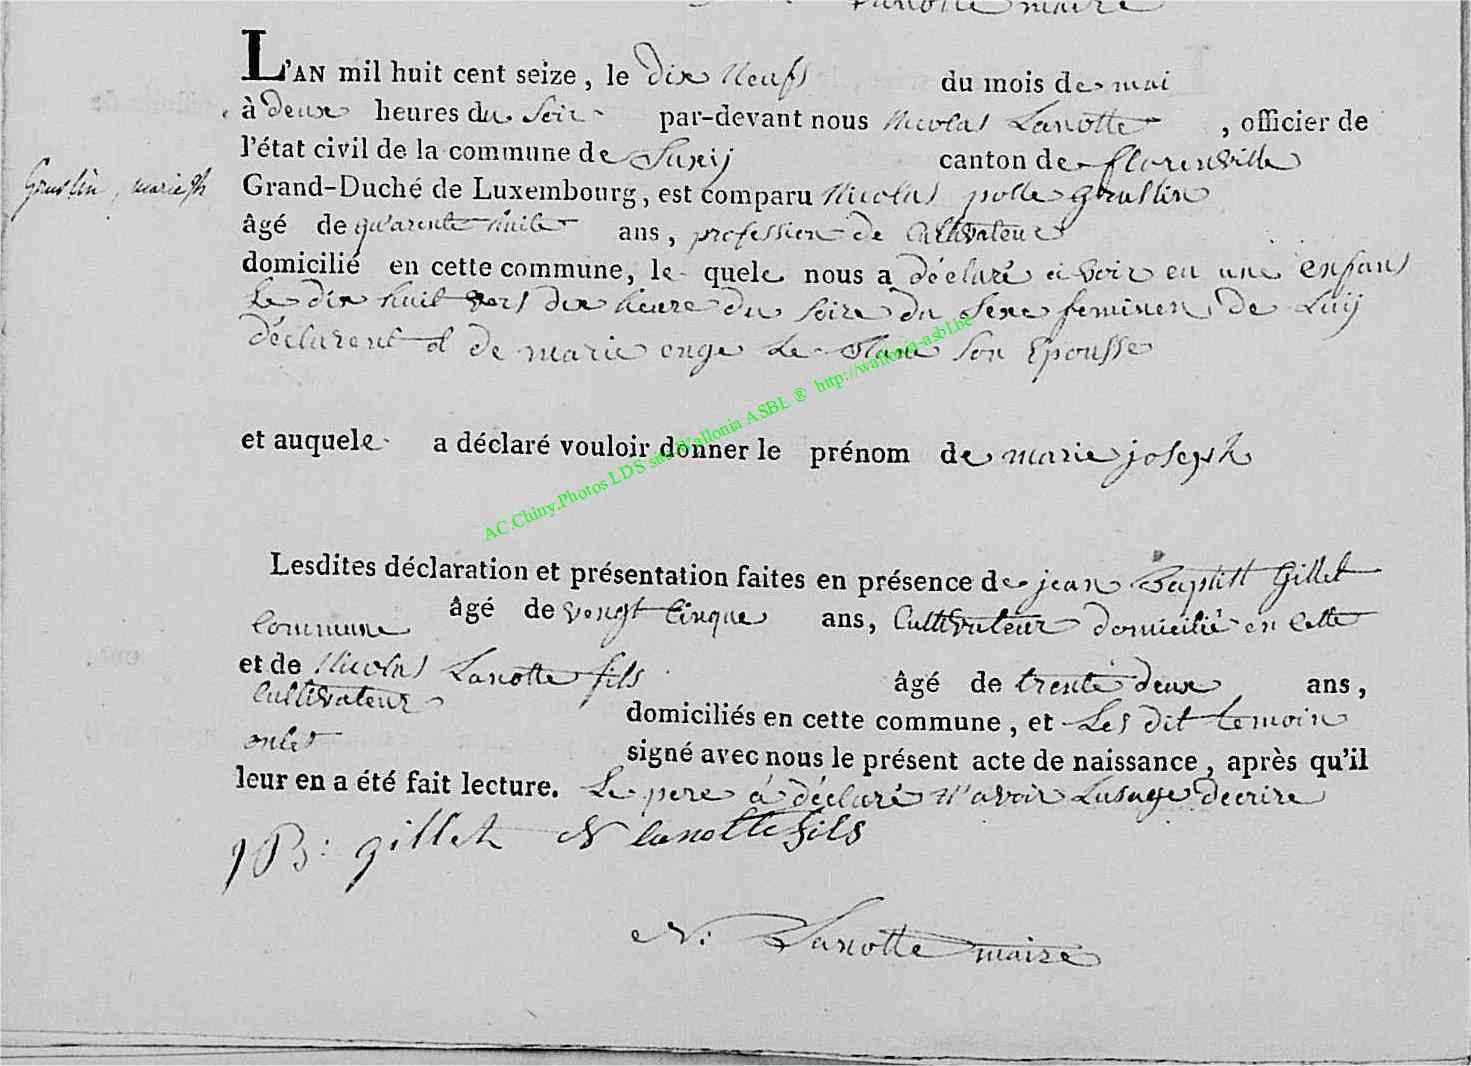 Lanotte maire
L'AN mil huit cent seize, le dix neufs du mois de mai
à deux heures du soir par-devant nous Nicolas Lanotte, officier de
l'état civil de la commune de Suxij canton de florenville
Grand-Duché de Luxembourg, est comparu Nicolas polle gruslin
Gruslin, marie jph
âgé de quarente huite ans, profession de Cultivateur
domicilié en cette commune, le quele nous a déclaré avoir eu une enfans
Le dix huit vers dix heure du soire du sexe feminen de Luij
déclarent et de marie enge Le son Epousse
et auquele a déclaré vouloir donner le prénom de marie joseph
Lesdites déclaration et présentation faites en présence de jean Baptist Gillet
âgé de vengt Cinque ans, Cultivateur domicilié en Cette
Commune
et de Nicolas Lanotte fils âgé de trente deux ans,
Cultivateur domiciliés en cette commune, et Les dit temoin
onles signé avec nous le présent acte de naissance, après qu'il
leur en a été fait lecture. Le pere a déclaré n'avoir Lusage decrire
JB: gillet N lanotte fils
N: Lanotte maire
AC.Chiny.Photos LDS site Wallonia ASBL ® http://wallonia-asbl.be